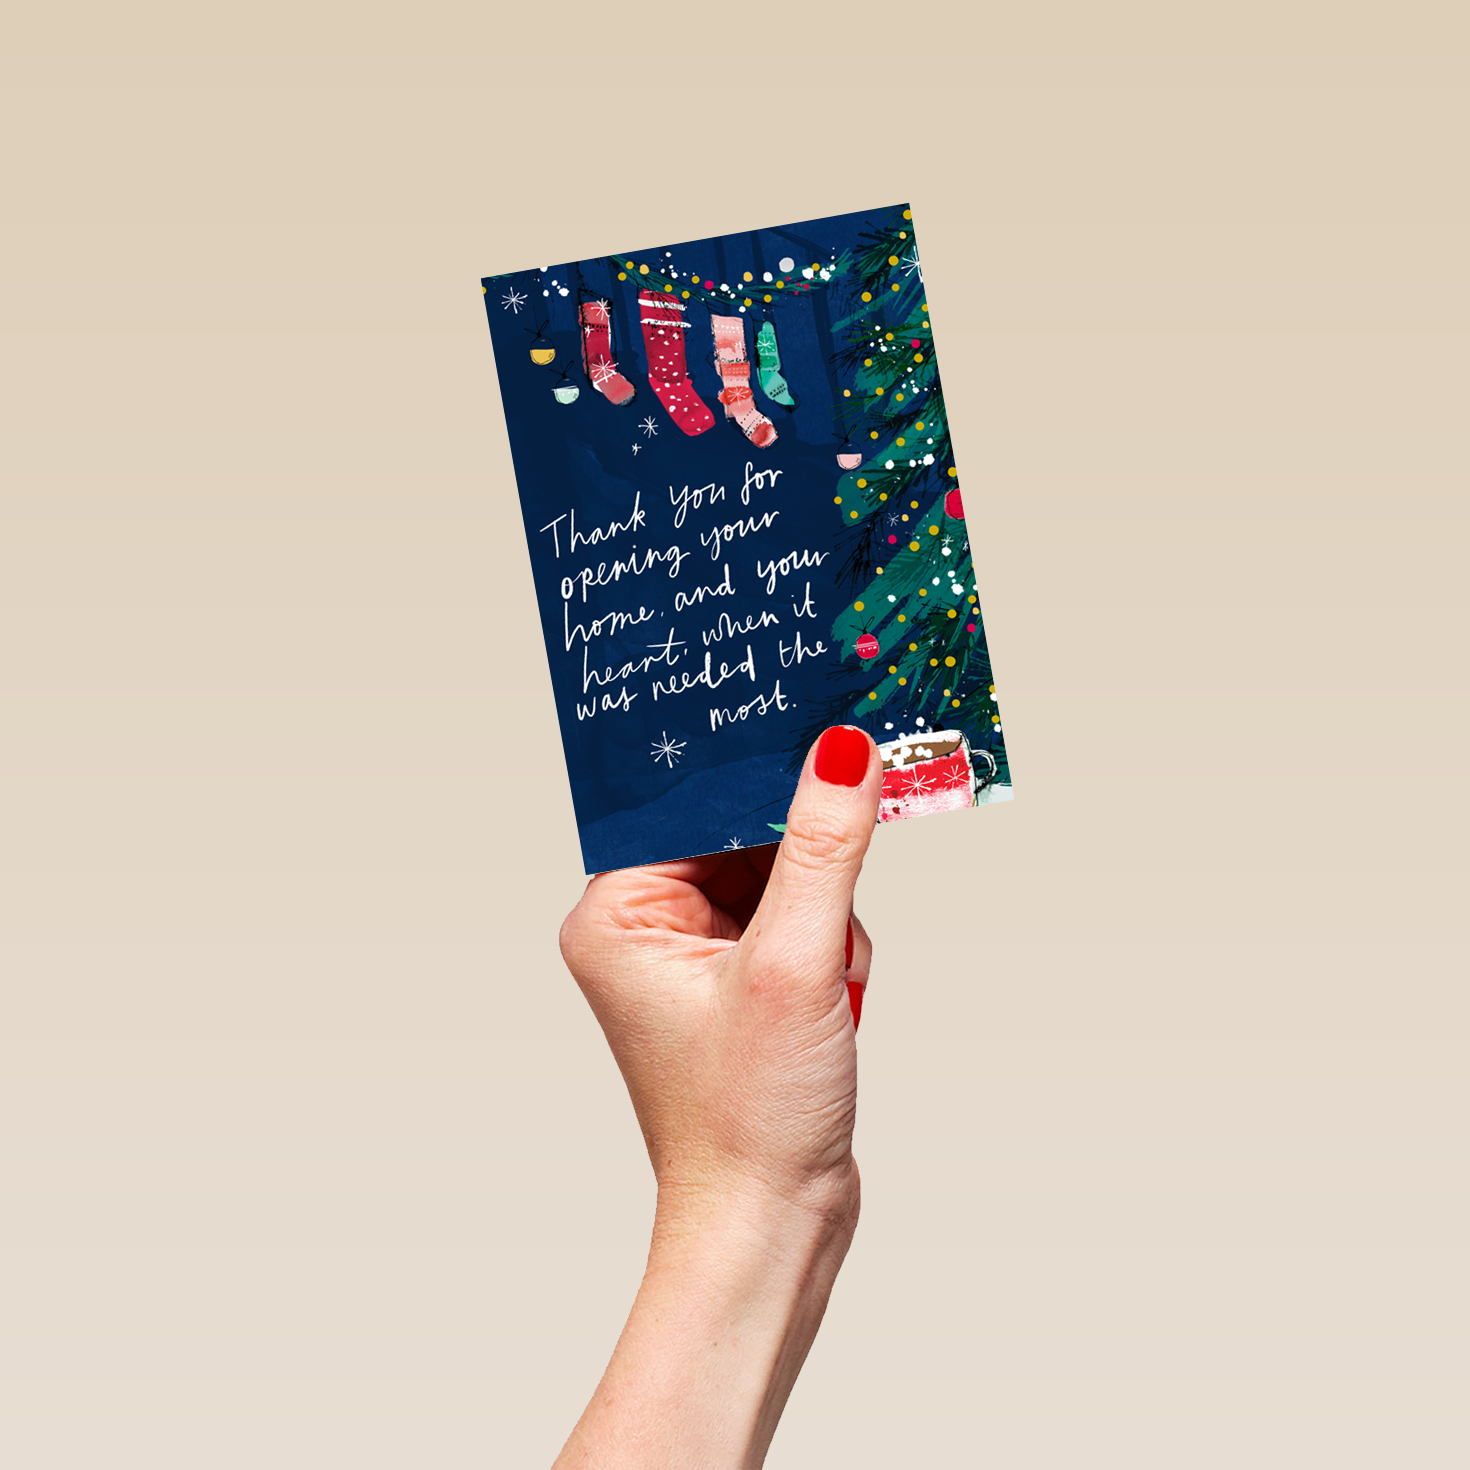 Thank You for
opening your
home, and your
heart, when it
was needed the
most.